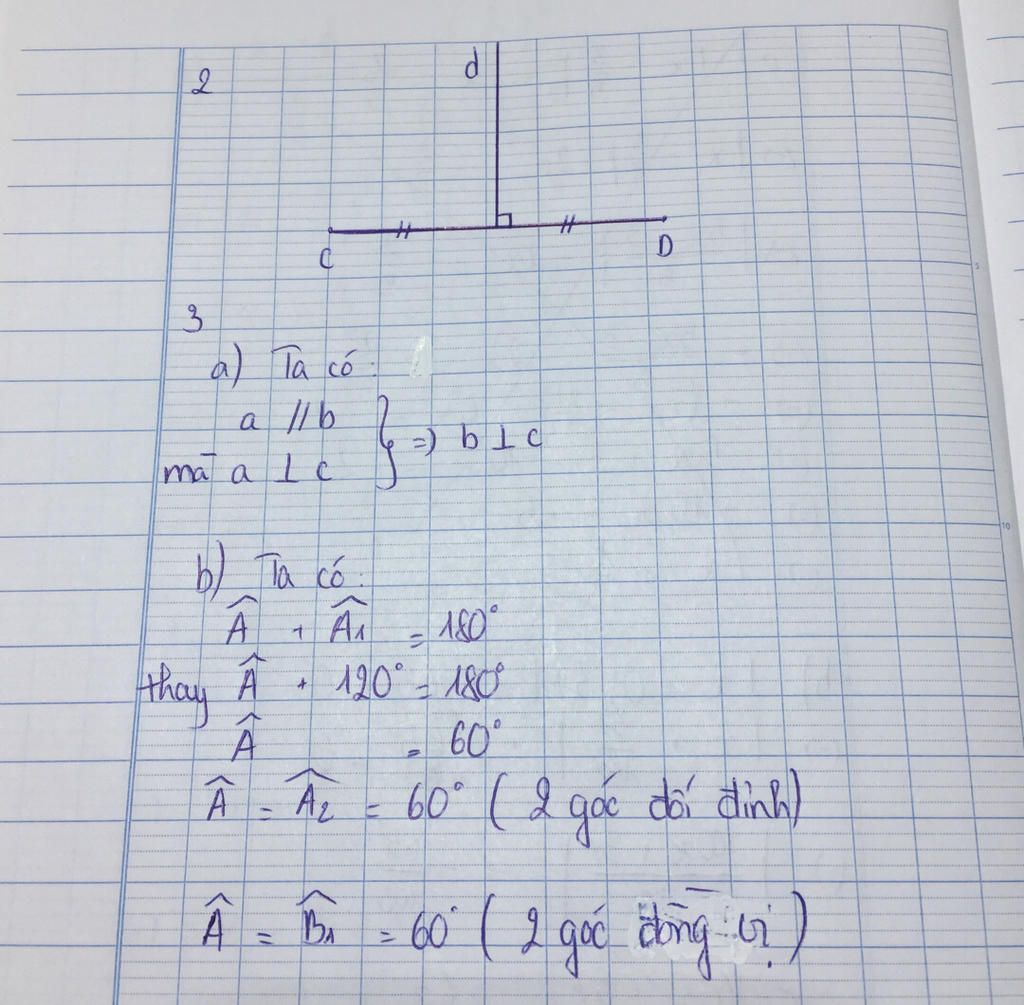 2
d
C
D
3
a) Ta có:
a // b
mà a ⊥ c } => b ⊥ c
b) Ta có:
Â + Â1 = 180°
thay Â + 120° = 180°
Â = 60°
Â = Â2 = 60° ( 2 góc đối đỉnh)
Â = B̂1 = 60° ( 2 góc đồng vị )
5
10